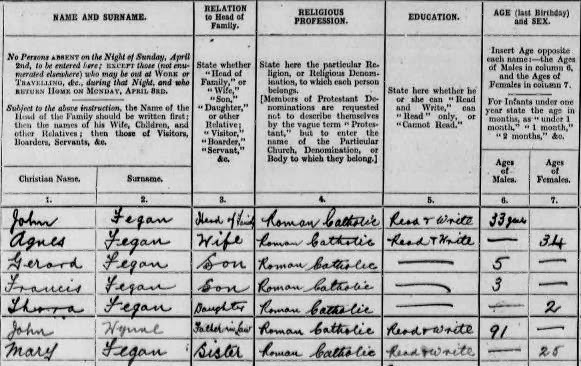 NAME AND SURNAME.
No Persons ABSENT on the Night of Sunday, April
2nd, to be entered here; EXCEPT those (not enu-
merated elsewhere) who may be out at WORK or
TRAVELLING, &c., during that Night, and who
RETURN HOME ON MONDAY, APRIL 3RD.
Subject to the above instruction, the Name of the
Head of the Family should be written first;
then the names of his Wife, Children, and
other Relatives; then those of Visitors,
Boarders, Servants, &c.
RELATION
to Head of
Family.
State whether
"Head of
Family," or
"Wife,"
"Son,"
"Daughter,"
or other
Relative;
"Visitor,"
"Boarder,"
"Servant,"
&c.
RELIGIOUS
PROFESSION.
State here the particular Reli-
gion, or Religious Denom-
ination, to which each person
belongs.
[Members of Protestant De-
nominations are requested
not to describe themselves
by the vague term "Protes-
tant," but to enter the
name of the Particular
Church, Denomination, or
Body to which they belong.]
EDUCATION.
State here whether he
or she can "Read
and Write," can
"Read" only, or
"Cannot Read."
AGE (last Birthday)
and SEX.
Insert Age opposite
each name:—the Ages
of Males in column 6,
and the Ages of
Females in column 7.
For Infants under one
year state the age in
months, as "under 1
month," "1 month,"
"2 months," &c.
Christian Name. Surname. Ages of Males. Ages of Females.
1. 2. 3. 4. 5. 6. 7.
John Fegan Head of Family Roman Catholic Read & Write 33
Agnes Fegan Wife Roman Catholic Read & Write — 34
Gerard Fegan Son Roman Catholic — 5 —
Francis Fegan Son Roman Catholic — 3 —
Fegan Daughter Roman Catholic — — 2
John Wynne Father in Law Roman Catholic Read & Write 91 —
Mary Fegan Sister Roman Catholic Read & Write — 25